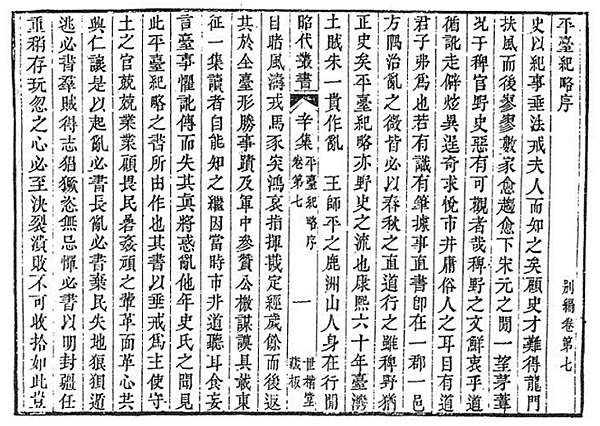 平臺紀略序 別編卷第七
史以紀事垂法戒夫人而知之矣顧史才難得龍門
扶風而後寥寥數家愈趨愈下宋元之間一望茅葦
況于稗官野史惡有可觀者哉稗野之文鮮衷乎道
循訛走僻炫異逞奇求悅市井庸俗人之耳目有道
君子弗爲也若有識有筆據事直書即在一郡一邑
方隅治亂之微皆必以春秋之直道行之雖稗野猶
正史矣平臺紀略亦野史之流也康熙六十年臺灣
土賊朱一貴作亂 王師平之鹿洲山人身在行間
昭代叢書 辛集 卷第七 平臺紀略序 一 世楷堂藏板
目睹風濤戎馬豕突鴻哀指揮戡定經歲餘而後返
其於全臺形勝事蹟及軍中參贊公檄謀謨具載東
征一集讀者自能知之繼因當時市井道聽耳食妄
言臺事懼訛傳而失其真將惑亂他年史氏之聞見
此平臺紀略之書所由作也其書以垂戒爲主使守
土之官兢兢業業顧畏民碞姦頑之輩革面革心共
與仁讓是以起亂必書長亂必書棄民失地狼狽遁
逃必書羣賊得志猖獗恣無忌憚必書以明封疆任
重稍存玩忽之心必至決裂潰敗不可收拾如此豈